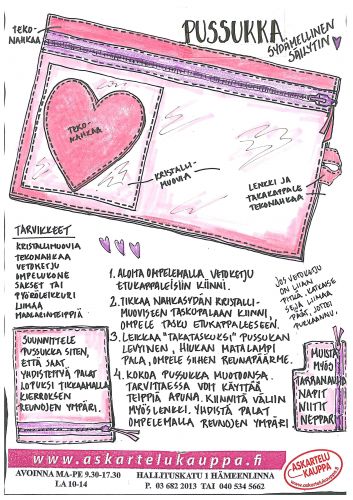 TEKO-
NAHKAA
PUSSUKKA
SYDÄMELLINEN
SÄILYTIN
TEKO-
NAHKAA
KRISTALLI-
MUOVIA
LENKKI JA
TAKAKAPPALE
TEKONAHKAA
TARVIKKEET
KRISTALLIMUOVIA
TEKONAHKAA
VETOKETJU
OMPELUKONE
SAKSET TAI
PYÖRÖLEIKKURI
LIIMAA
MAALARINTEIPPIÄ
1. ALOITA OMPELEMALLA VETOKETJU
ETUKAPPALEISIIN KIINNI.
2. TIKKAA NAHKASYDÄN KRISTALLI-
MUOVISEEN TASKUPALAAN KIINNI,
OMPELE TASKU ETUKAPPALEESEEN.
3. LEIKKAA "TAKATASKUKSI" PUSSUKAN
LEVYINEN, HIUKAN MATALAMPI
PALA, OMPELE SIIHEN REUNAPÄÄRME.
4. KOKOA PUSSUKKA MUOTOONSA.
TARVITTAESSA VOIT KÄYTTÄÄ
TEIPPIÄ APUNA. KIINNITÄ VÄLIIN
MYÖS LENKKI. YHDISTÄ PALAT
OMPELEMALLA REUNOJEN YMPÄRI.
JOS VETOKETJU
ON LIIAN
PITKÄ, KATKAISE
SE JA LIIMAA
PÄÄT, JOTTEI
PURKAANNU.
SUUNNITTELE
PUSSUKKA SITEN,
ETTÄ SAAT
YHDISTETTYÄ PALAT
LOPUKSI TIKKAAMALLA
KIERROKSEN
REUNOJEN YMPÄRI.
MUISTA
MYÖS
TARRANAUHAT
NAPIT
NIITIT
NEPPARIT
www.askartelukauppa.fi
AVOINNA MA-PE 9.30-17.30
LA 10-14
HALLITUSKATU 1 HÄMEENLINNA
P. 03 682 2013 TAI 040 534 5662
ASKARTELU
KAUPPA
www.askartelukauppa.fi